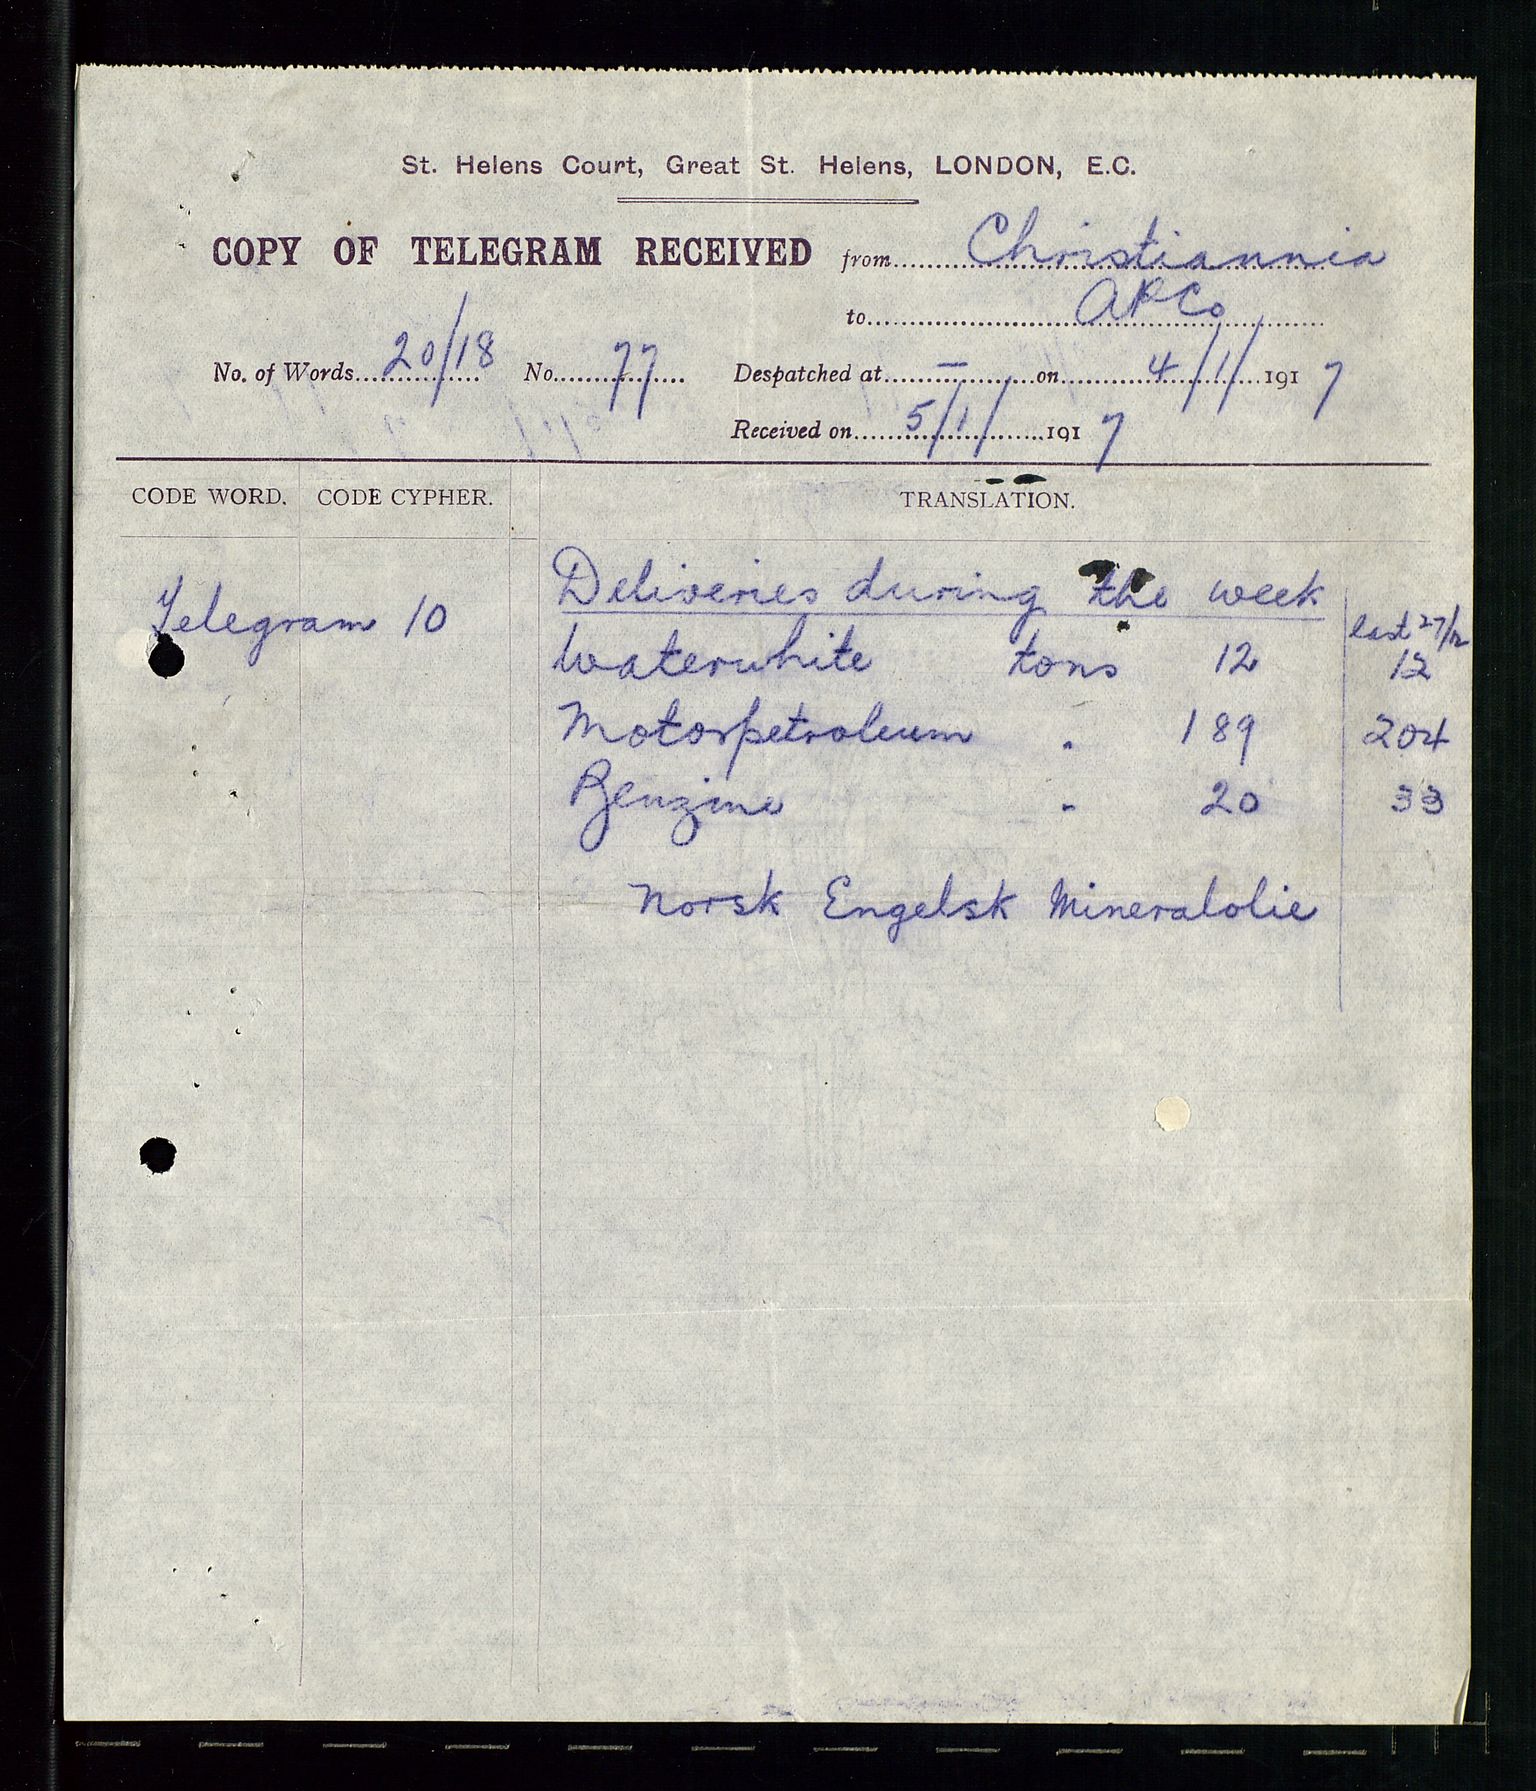 St. Helens Court, Great St. Helens, LONDON, E.C.
COPY OF TELEGRAM RECEIVED from Christiannia
to APCo
No. of Words 20/18 No. 77 Despatched at — on 4/1/1917
Received on 5/1/1917
CODE WORD. CODE CYPHER. TRANSLATION.
Deliveries during the week
Telegram 10
last 27/12
Waterwhite tons 12 12
Motorpetroleum " 189 204
Benzine " 20 33
Norsk Engelsk Mineralolie